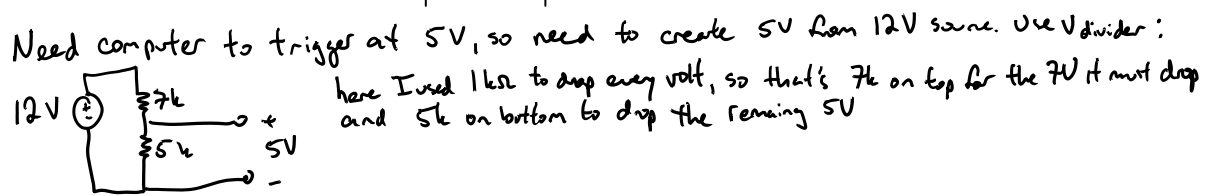 Need computer to trigger at 5V, so need to create 5V from 12V source. Use V divider:
here I used 1kΩ to drop every volt, so that's 7k on top for the 7V it must drop
and 5k on bottom to drop the remaining 5V
12V
7k
5k
+
5V
-